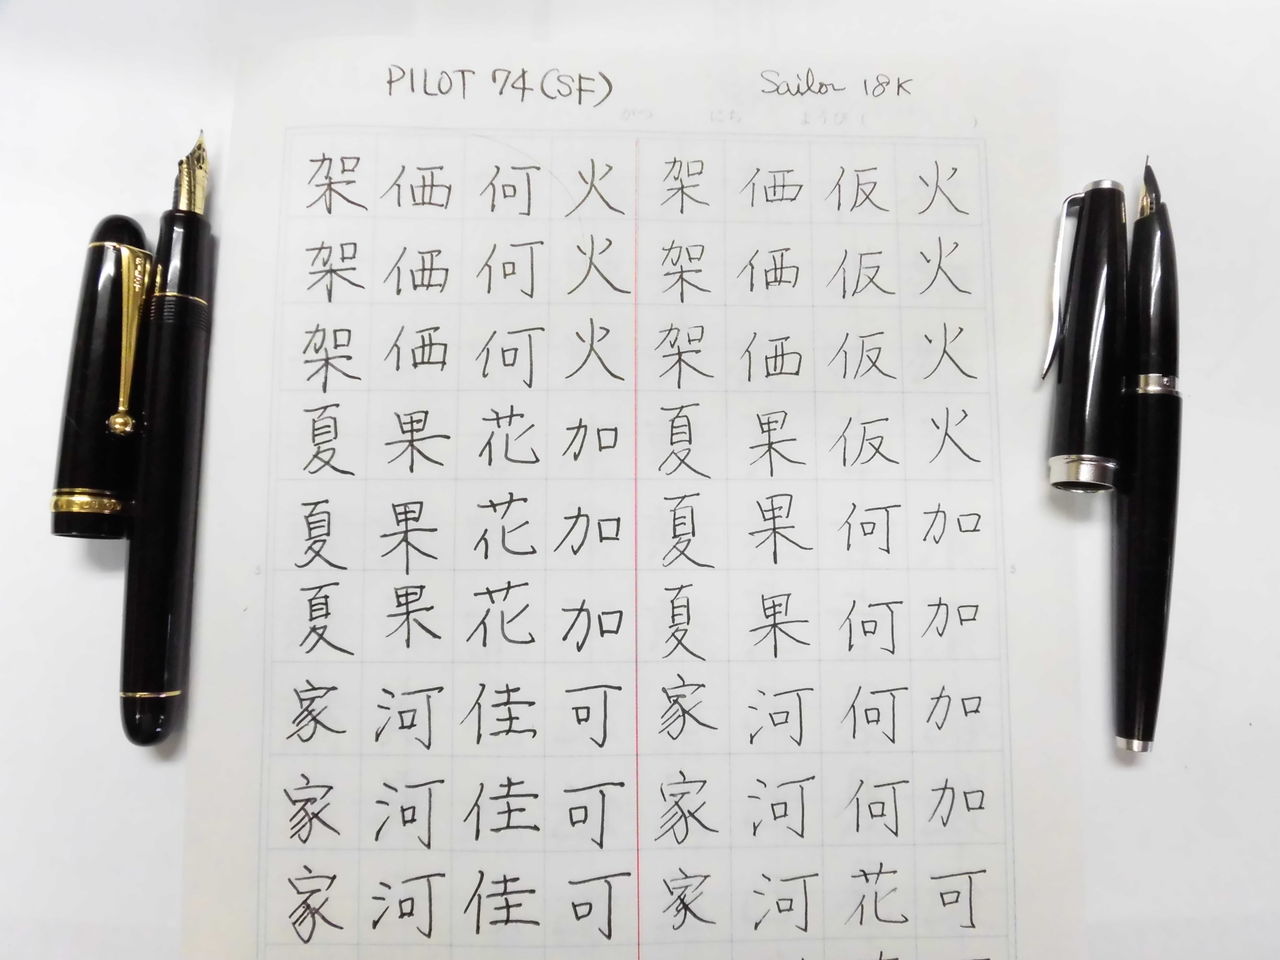 PILOT 74(SF)
Sailor 18K
がつ にち ようび ( )
火火火火加加加加可
仮仮仮仮何何何何花
価価価果果果河河河
架架架夏夏夏家家家
火火火加加加可可可
何何何花花花佳佳佳
価価価果果果河河河
架架架夏夏夏家家家